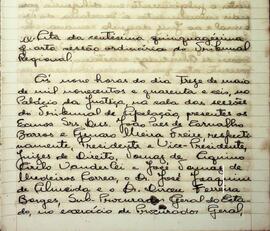 Acta da centesima quinquagesima
quarta sessão ordinaria do Tribunal
Regional.
Ás nove horas do dia treze de maio
de mil novecentos e quarenta e seis, no
Palácio da Justiça, na sala das sessões
do Tribunal de Apelação, presentes os
Exmos Srs. Des. José Paes de Carvalho
Barros e Genaro Meira Freire respecti
vamente, Presidente e Vice-Presidente,
Juizes de Direito, Tomas de Aquino
Cirilo Wanderlei e José Tomas de
Medeiros Correa, o Dr. José Joaquim
de Almeida e o Dr. Duarte Ferreira
Borges, Sub-Procurador Geral do Esta
do, no exercicio de Procurador Geral,